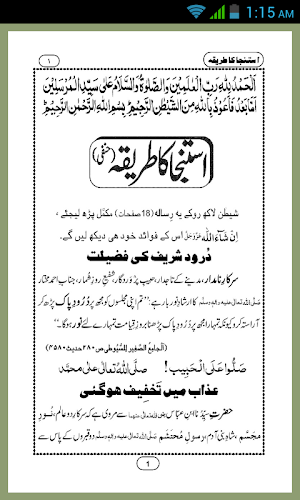 1:15 AM
۱ استنجا کا طریقہ
اَلْحَمْدُ لِلّٰهِ رَبِّ الْعٰلَمِیْنَ وَالصَّلٰوةُ وَالسَّلَامُ عَلٰی سَیِّدِ الْمُرْسَلِیْنَ
اَمَّا بَعْدُ فَاَعُوْذُ بِاللّٰهِ مِنَ الشَّیْطٰنِ الرَّجِیْمِ بِسْمِ اللّٰهِ الرَّحْمٰنِ الرَّحِیْمِ
استنجا کا طریقہ (حنفی)
شیطٰن لاکھ روکے یہ رِسالہ (18 صفحات) مکمَّل پڑھ لیجئے،
اِنْ شَآءَ اللّٰه عَزَّوَجَلَّ اس کے فوائد خود ھی دیکھ لیں گے۔
دُرُود شریف کی فضیلت
سرکارِ نامدار، مدینے کے تاجدار، حبیبِ پَرْوَرْدَگار، شفیعِ روزِ شُمار، جنابِ احمدِ مختار
صلَّی اللہ تعالٰی علیہ واٰلہ وسلَّم کا ارشادِ نور بار ہے: ”تم اپنی مجلسوں کو مجھ پر دُرُودِ پاک پڑھ کر
آراستہ کرو کیونکہ تمہارا مجھ پر دُرُودِ پاک پڑھنا بروزِ قیامت تمہارے لئے نور ہوگا۔“
(اَلْجامِعُ الصَّغِیر لِلسُّیُوطی ص۲۸۰ حدیث ۴۵۸۰)
صَلُّوْا عَلَی الْحَبِیْب! صلَّی اللّٰهُ تعالٰی علٰی محمَّد
عذاب میں تَخفِیف ہو گئی
حضرتِ سیِّدُنا ابنِ عبّاس رضی اللہ تعالٰی عنہما سے مروی ہے کہ سرکارِ دو عالم، نُورِ
مجسَّم، شاہِ بنی آدم، رسولِ مُحتَشَم صلَّی اللہ تعالٰی علیہ واٰلہ وسلَّم دو قبروں کے پاس سے
1